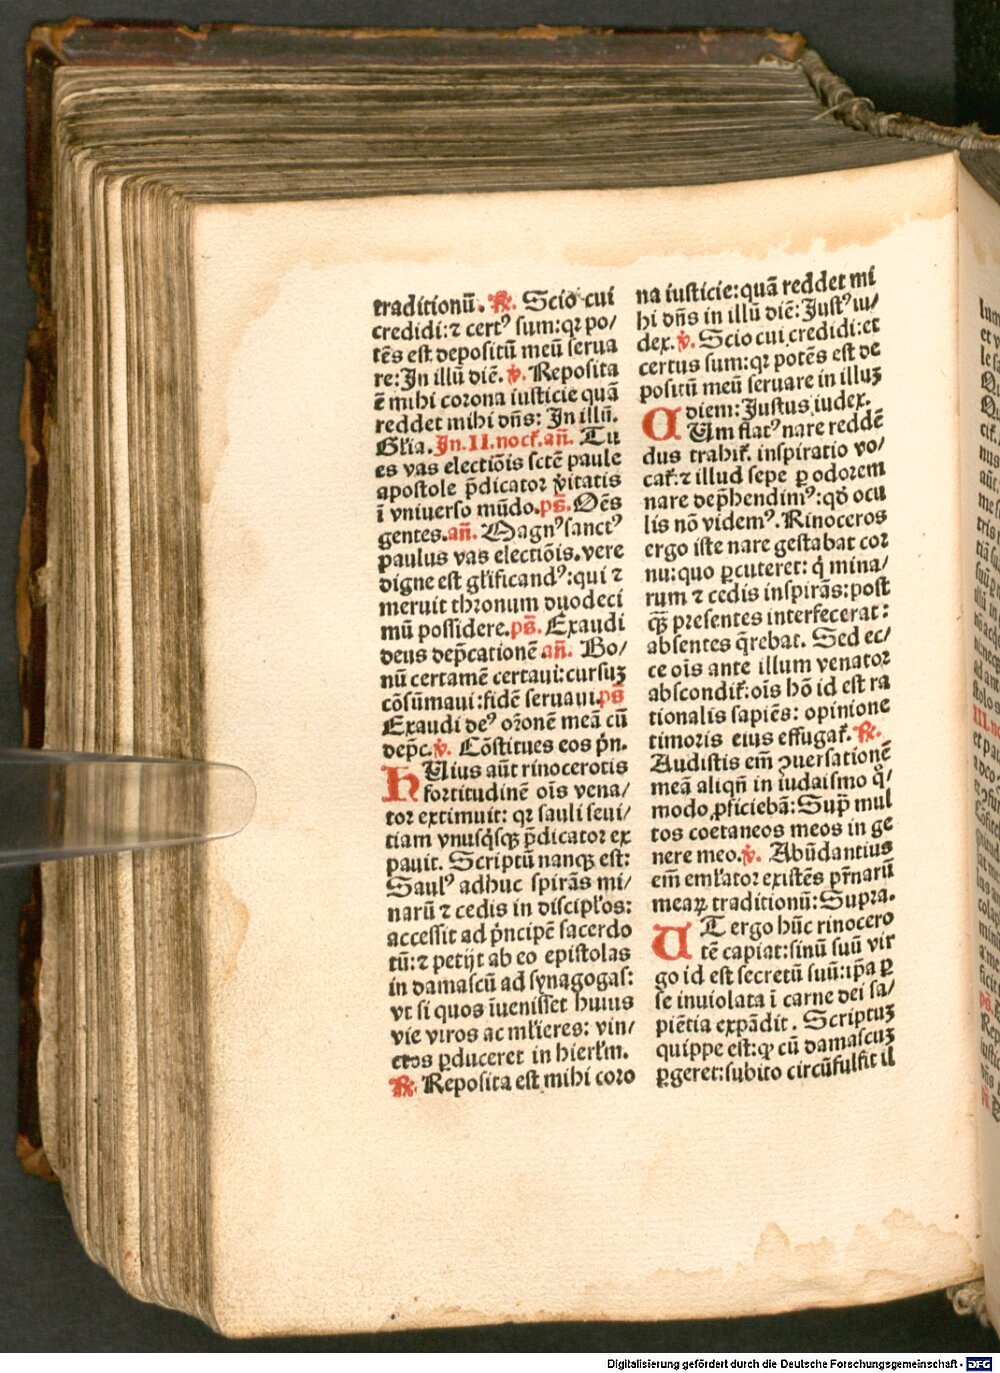 traditionū. ℟. Scio cui
credidi:⁊ certꝰ sum:qꝛ po/
tēs est depositū meū serua
re:In illū diē. ℣. Reposita
ē mihi corona iusticie quā
reddet mihi dn̄s: In illū.
Gl̓ia. In. II. noct̓. an̄. Tu
es vas electiōis sctē paule
apostole p̄dicator v̓itatis
ī vniuerso mūdo. ps̄. Oēs
gentes. an̄. Magnꝰ sanctꝰ
paulus vas electiōis. vere
digne est gl̓ificandꝰ:qui ⁊
meruit thronum duodeci
mū possidere. ps̄. Exaudi
deus dep̄cationē an̄. Bo/
nū certamē certaui:cursuꝫ
cōsūmaui:fidē seruaui. ps̄
Exaudi deꝰ oꝛonē meā cū
dep̄c. ℣. Cōstitues eos pn̄.
HUius aūt rinocerotis
fortitudinē oīs vena/
tor extimuit: qꝛ sauli seui/
tiam vnusq̓sqꝫ p̄dicator ex
pauit. Scriptū nanqꝫ est:
Saulꝰ adhuc spirās mi/
narū ⁊ cedis in discipl̓os:
accessit ad pn̓cipē sacerdo
tū:⁊ petijt ab eo epistolas
in damascū ad synagogas:
vt si quos īuenisset huius
vie viros ac ml̓ieres: vin/
ctos ꝑduceret in hierl̓m.
℟. Reposita est mihi coro
na iusticie:quā reddet mi
hi dn̄s in illū diē: Justꝰ iu/
dex. ℣. Scio cui credidi:et
certus sum:qꝛ potēs est de
positū meū seruare in illuꝫ
diem: Justus iudex.
CUm flatꝰ nare reddē
dus trahit̓. inspiratio vo/
cat̓:⁊ illud sepe ꝑ odorem
nare dep̄hendimꝰ:qd̓ ocu
lis nō videmꝰ. Rinoceros
ergo iste nare gestabat cor
nu:quo ꝑcuteret: q̓ mina/
rum ⁊ cedis inspirās:post
qꝫ̄ presentes interfecerat:
absentes q̄rebat. Sed ec/
ce oīs ante illum venator
abscondit̓:oīs hō id est ra
tionalis sapiēs: opinione
timoris eius effugat̓. ℟.
Audistis em̄ ꝯuersationē
meā aliqn̄ in iudaismo q̓/
modo ꝓficiebā: Sup̄ mul
tos coetaneos meos in ge
nere meo. ℣. Abūdantius
em̄ eml̓ator existēs pr̄narū
mearꝝ traditionū: Supra.
UT ergo hūc rinocero
tē capiat:sinū suū vir
go id est secretū suū:ip̄a ꝑ
se inuiolata ī carne dei sa/
piētia expādit. Scriptuꝫ
quippe est:qꝙ cū damascuꝫ
ꝑgeret:subito circūfulsit il
Digitalisierung gefördert durch die Deutsche Forschungsgemeinschaft - DFG